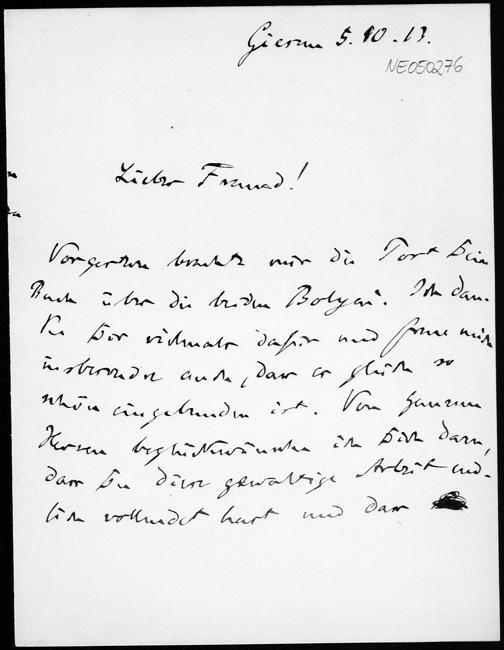 Giessen 5.10.13.
NE050276
Lieber Freund!
Vorgestern brachte mir die Post Dein
Buch über die beiden Bolyai. Ich dan-
ke Dir vielmals dafür und freue mich
insbesondre auch, dass es gleich so
schön eingebunden ist. Von ganzem
Herzen beglückwünsche ich Dich dazu,
dass Du diese gewaltige Arbeit end-
lich vollendet hast und dass